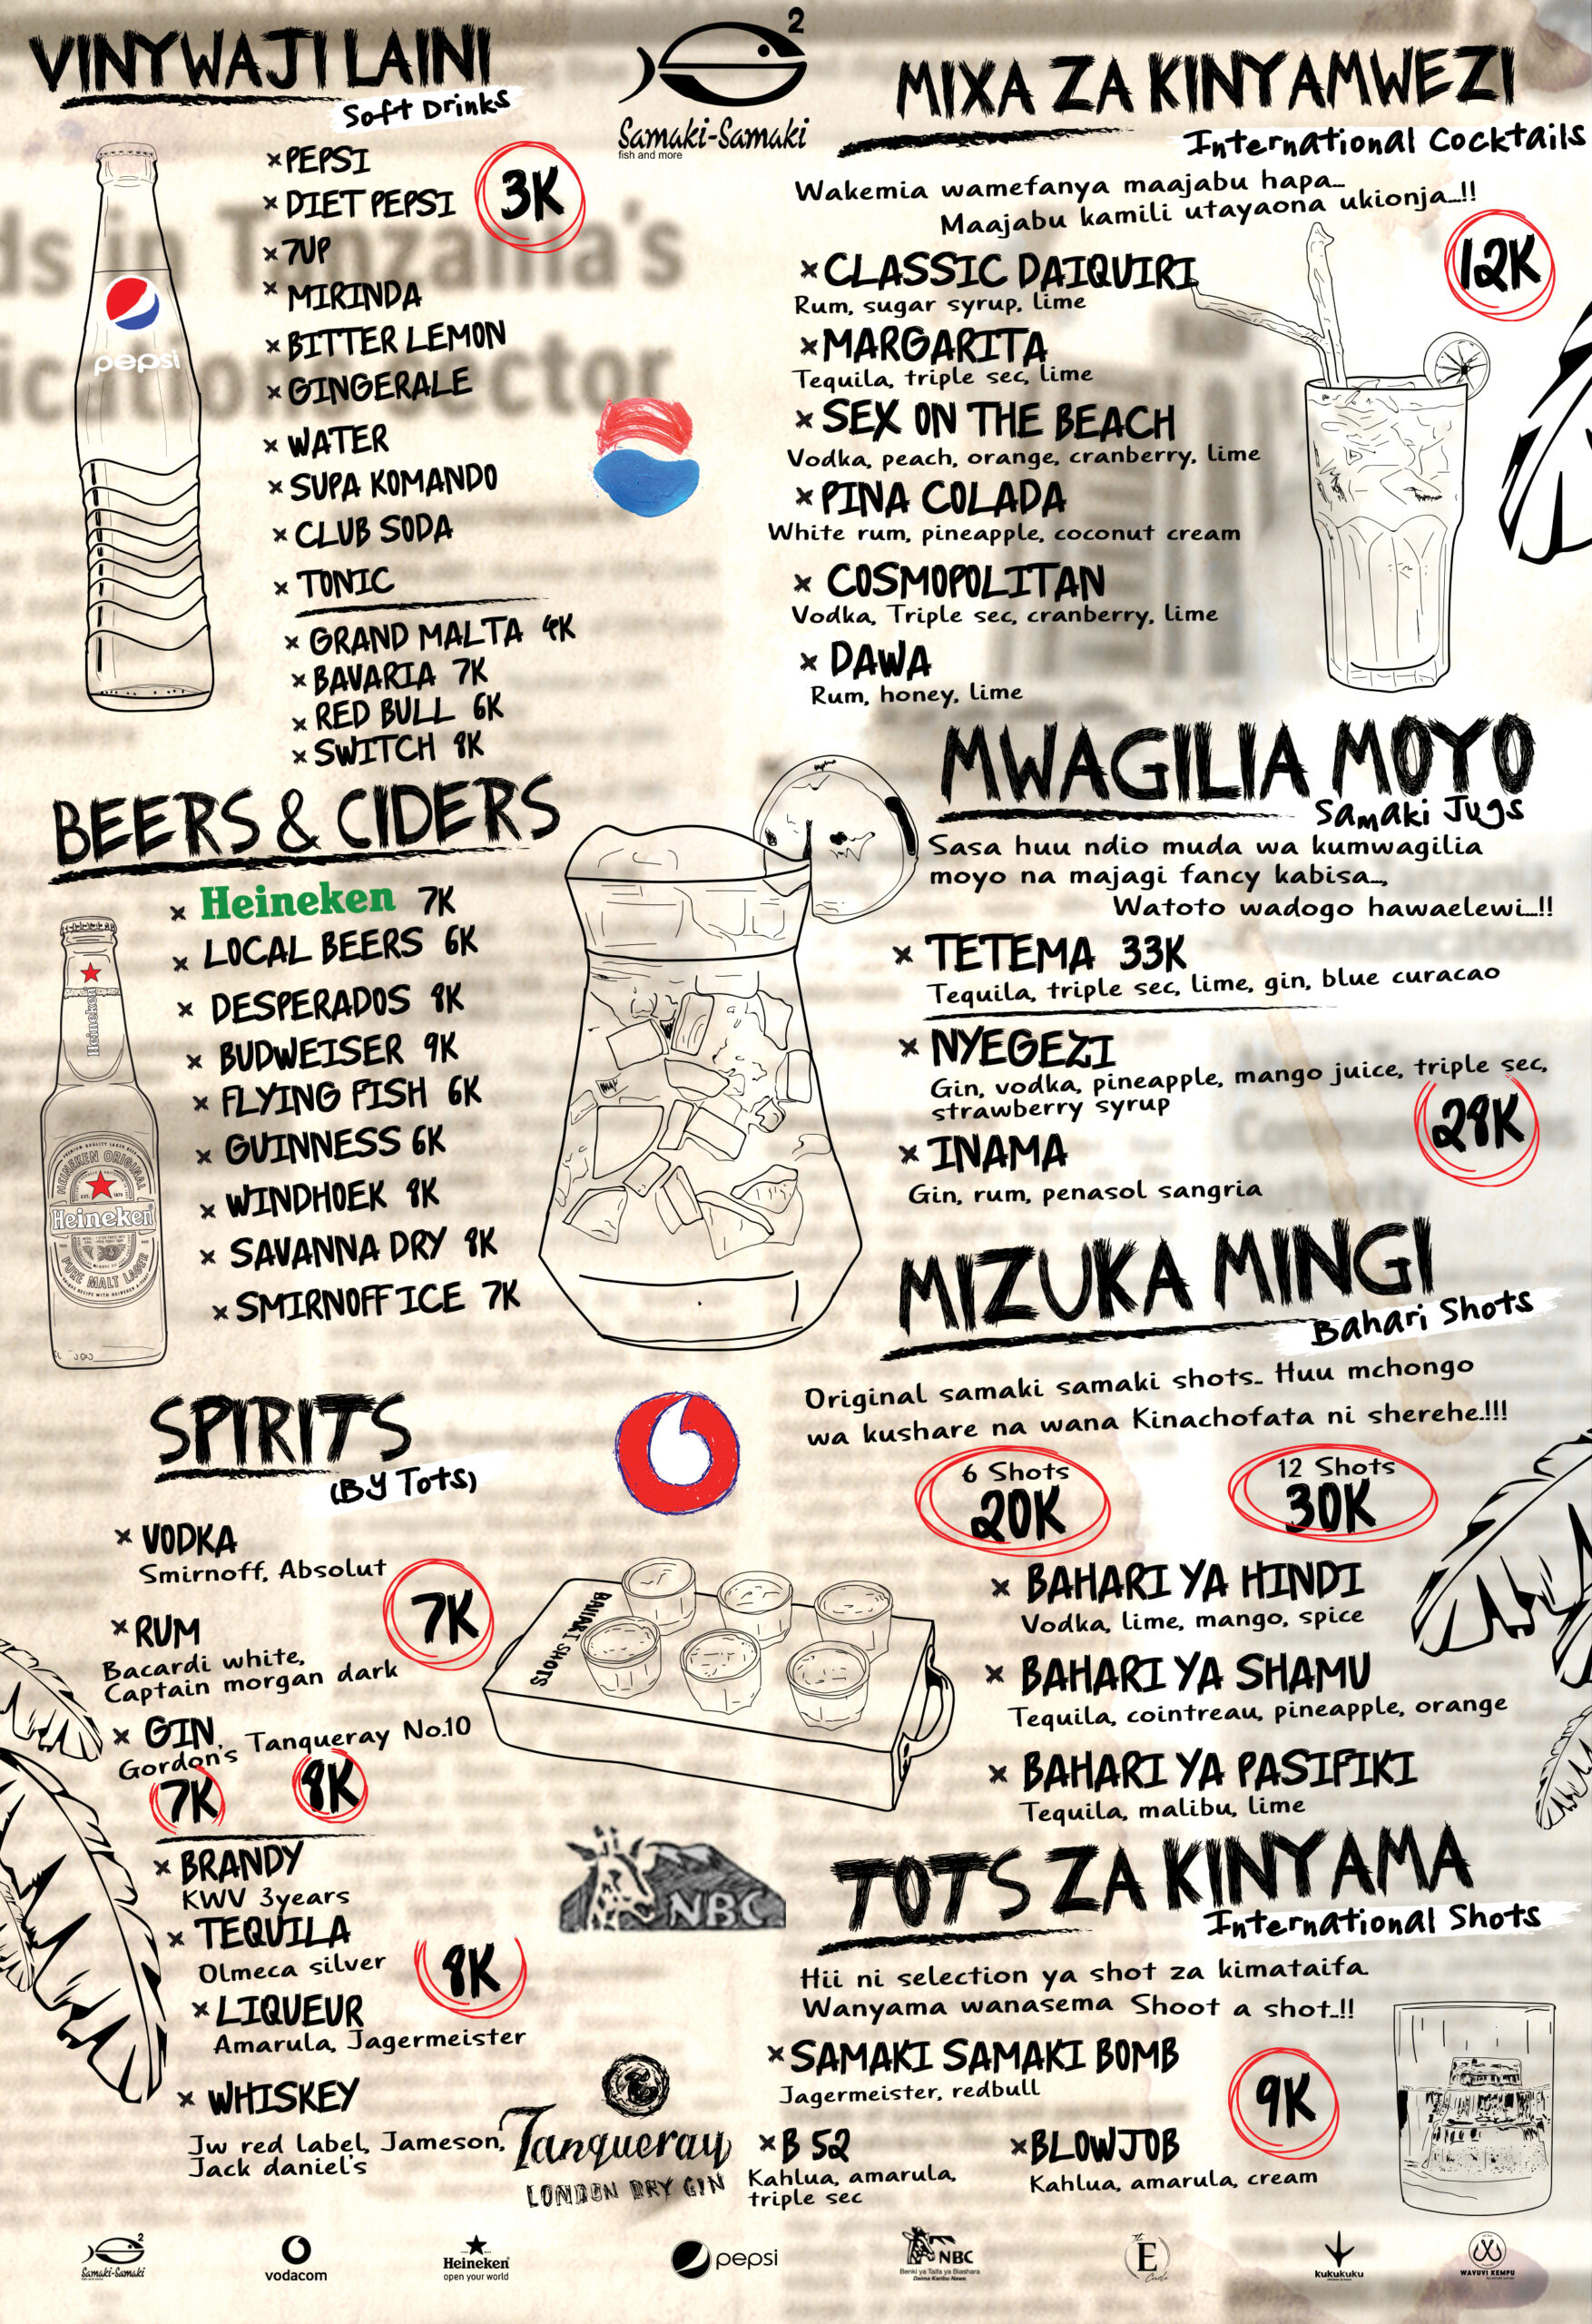 VINYWAJI LAINI
Soft Drinks
pepsi
×PEPSI
× DIET PEPSI
3K
×7UP
× MIRINDA
× BITTER LEMON
× GINGERALE
× WATER
× SUPA KOMANDO
× CLUB SODA
× TONIC
× GRAND MALTA 4K
× BAVARIA 7K
× RED BULL 6K
× SWITCH 8K
BEERS & CIDERS
× Heineken 7K
× LOCAL BEERS 6K
× DESPERADOS 8K
× BUDWEISER 9K
× FLYING FISH 6K
× GUINNESS 6K
× WINDHOEK 8K
× SAVANNA DRY 8K
× SMIRNOFF ICE 7K
Heineken
HEINEKEN ORIGINAL
Heineken
PURE MALT LAGER
SPIRITS
(By Tots)
× VODKA
Smirnoff, Absolut
7K
× RUM
Bacardi white,
Captain morgan dark
× GIN
Gordon's Tanqueray No.10
7K 8K
× BRANDY
KWV 3years
× TEQUILA
Olmeca silver
8K
× LIQUEUR
Amarula, Jagermeister
× WHISKEY
Jw red label, Jameson,
Jack daniel's
2
Samaki-Samaki
fish and more
BAHARI SHOTS
NBC
Tanqueray
LONDON DRY GIN
MIXA ZA KINYAMWEZI
International Cocktails
Wakemia wamefanya maajabu hapa...
Maajabu kamili utayaona ukionja...!!
12K
×CLASSIC DAIQUIRI
Rum, sugar syrup, lime
×MARGARITA
Tequila, triple sec, lime
× SEX ON THE BEACH
Vodka, peach, orange, cranberry, lime
× PINA COLADA
White rum, pineapple, coconut cream
× COSMOPOLITAN
Vodka, Triple sec, cranberry, lime
× DAWA
Rum, honey, lime
MWAGILIA MOYO
Samaki Jugs
Sasa huu ndio muda wa kumwagilia
moyo na majagi fancy kabisa...,
Watoto wadogo hawaelewi...!!
× TETEMA 33K
Tequila, triple sec, lime, gin, blue curacao
× NYEGEZI
Gin, vodka, pineapple, mango juice, triple sec,
strawberry syrup
28K
× INAMA
Gin, rum, penasol sangria
MIZUKA MINGI
Bahari Shots
Original samaki samaki shots.. Huu mchongo
wa kushare na wana Kinachofata ni sherehe.!!!
6 Shots
20K
12 Shots
30K
× BAHARI YA HINDI
Vodka, lime, mango, spice
× BAHARI YA SHAMU
Tequila, cointreau, pineapple, orange
× BAHARI YA PASIFIKI
Tequila, malibu, lime
TOTS ZA KINYAMA
International Shots
Hii ni selection ya shot za kimataifa
Wanyama wanasema Shoot a shot..!!
×SAMAKI SAMAKI BOMB
Jagermeister, redbull
9K
×B 52
Kahlua, amarula,
triple sec
×BLOWJOB
Kahlua, amarula, cream
2
Samaki-Samaki
vodacom
Heineken
open your world
pepsi
NBC
Benki ya Taifa ya Biashara
Daima Karibu Nawe.
The
E
Circle
kukukuku
WAVUVI KEMPU